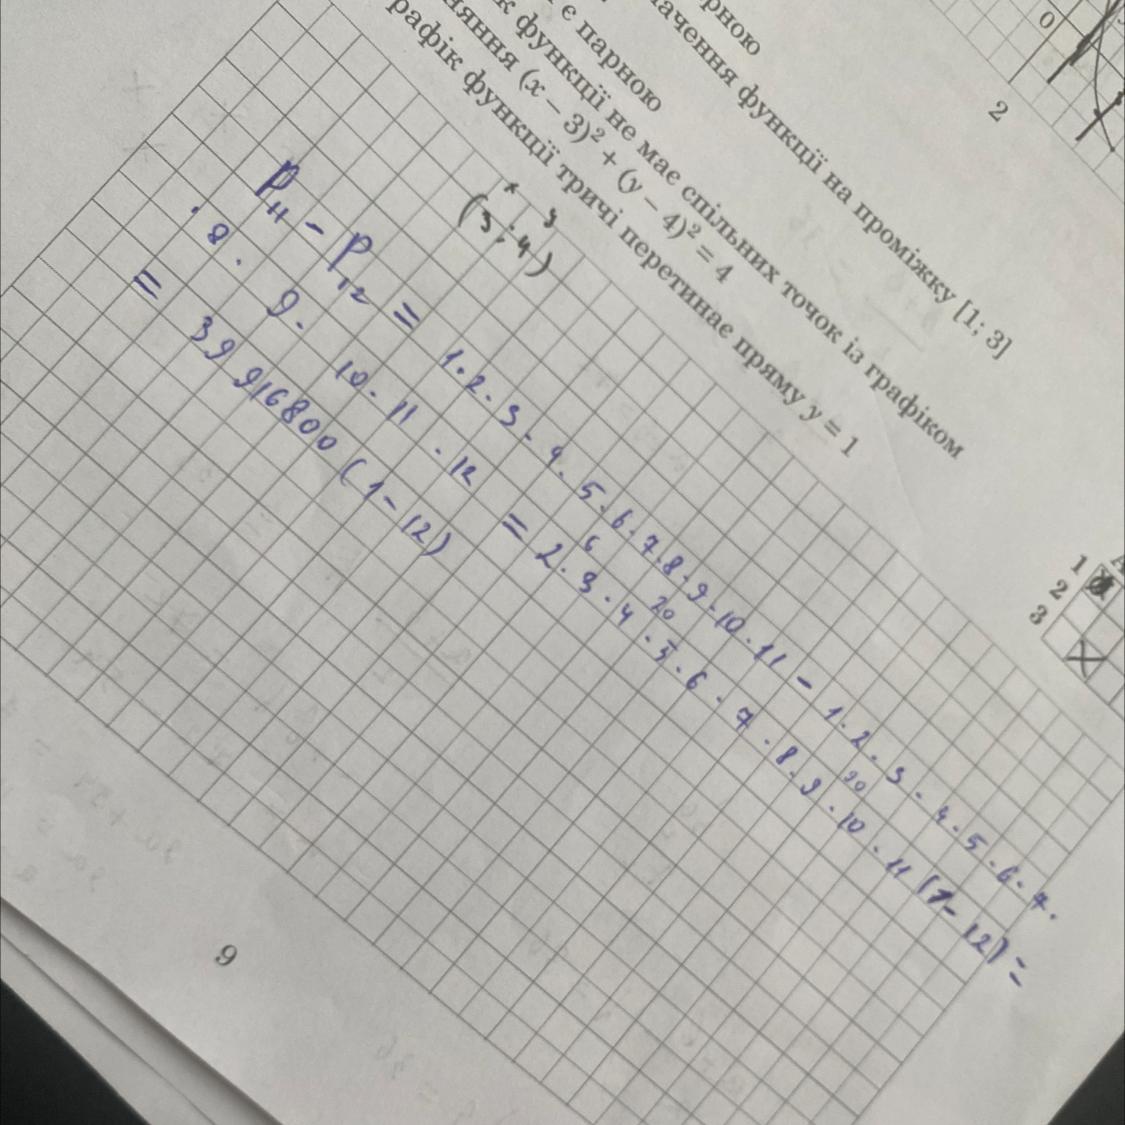 рною
ачення функції на проміжку [1; 3]
є парною
к функції не має спільних точок із графіком
няння (x – 3)² + (y – 4)² = 4
рафік функції тричі перетинає пряму y = 1
0
2
1
2
3
x y
(3; -4)
P₁₁ - P₁₂ = 1·2·3·4·5·6·7·8·9·10·11 - 1·2·3·4·5·6·7·
·8·9·10·11·12 = 2·3·4·5·6·7·8·9·10·11(1-12) =
6 20 90
= 39 916800 (1-12)
9